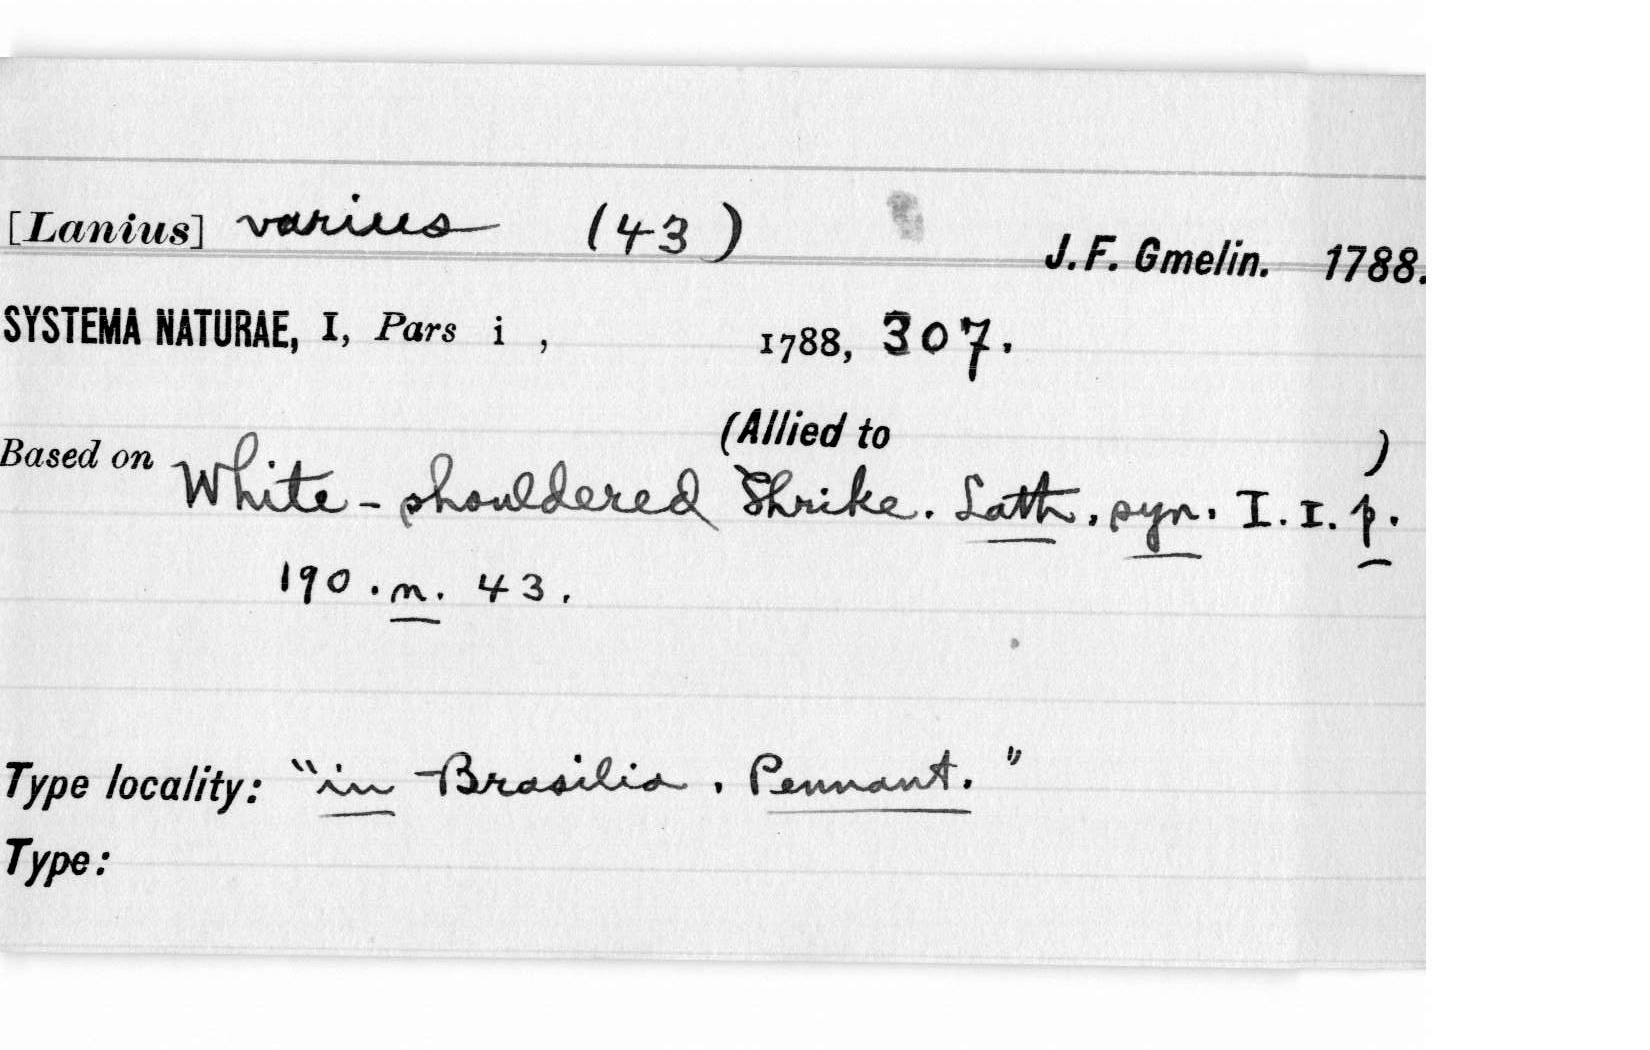 [Lanius] varius (43) J. F. Gmelin. 1788.
SYSTEMA NATURAE, I, Pars i , 1788, 307.
(Allied to )
Based on White-shouldered Shrike. Lath. syn. I. I. p.
190. n. 43.
Type locality: "in Brasilia. Pennant."
Type: